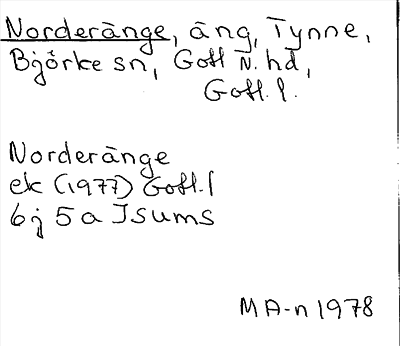 Norderänge, äng, Tynne,
Björke sn, Gotl N. hd,
Gotl. l.
Norderänge
ek (1977) Gotl. l
6j 5a Isums
MA-n 1978